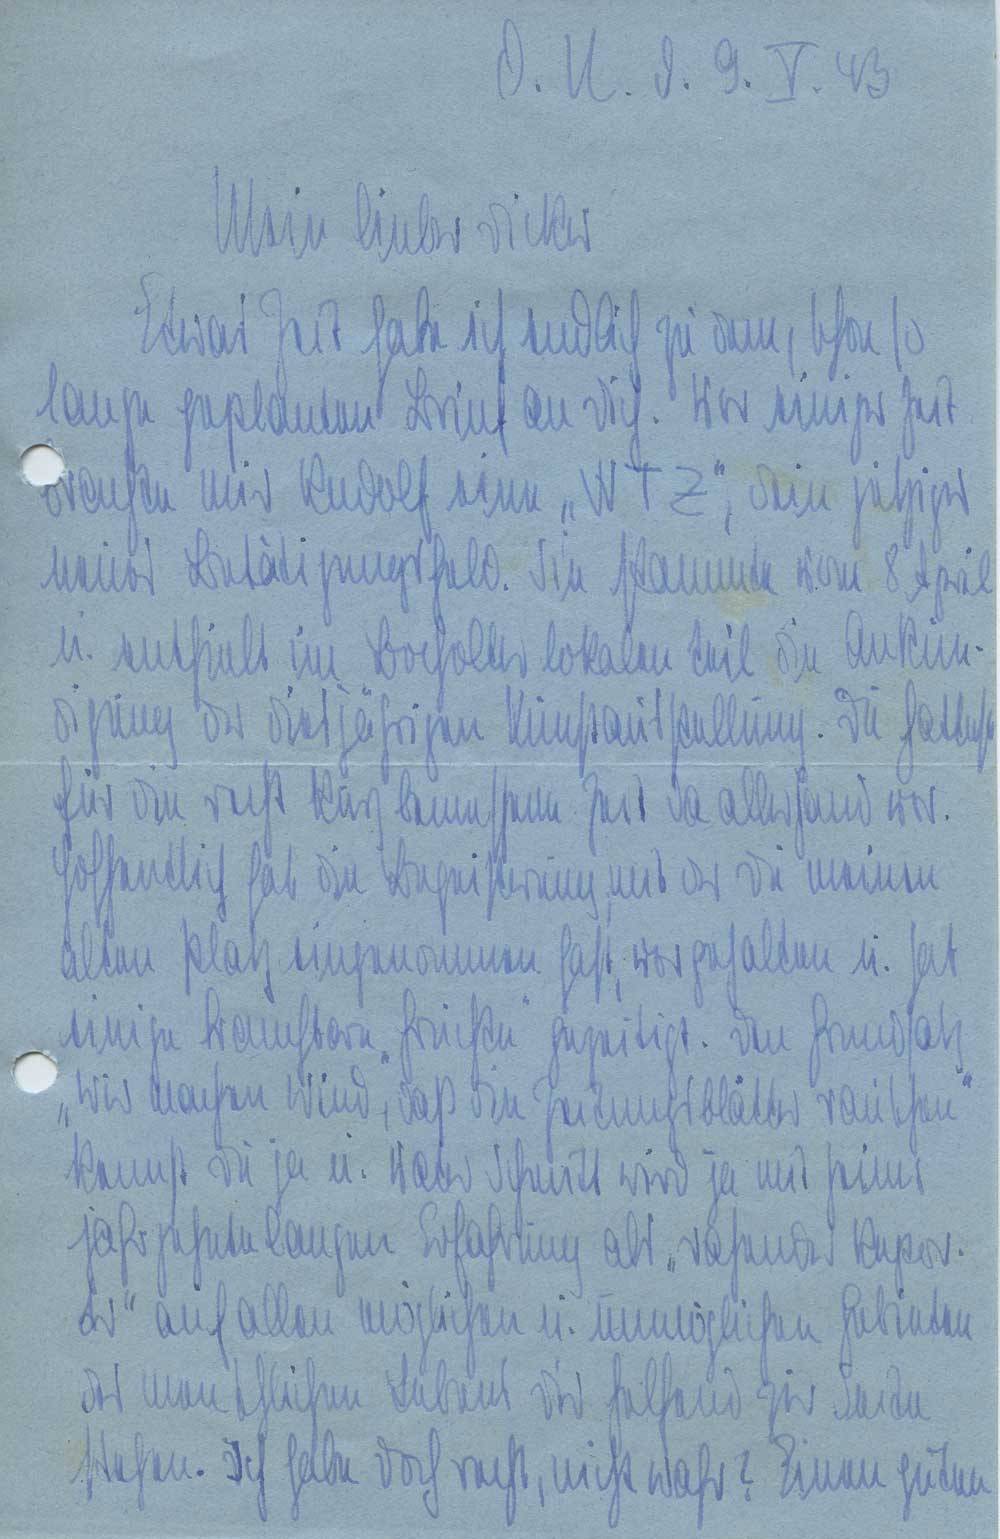 O. U. d. 9. V. 43
Mein lieber Dicker
Etwas Zeit habe ich endlich zu dem, schon so
lange geplanten Brief an Dich. Vor einiger Zeit
brachte mir Rudolf eine „WTZ“, Dein jetziges
neues Betätigungsfeld. Sie stammte vom 8 April
u. enthielt im Bocholter lokalen Teil die Ankün-
digung der diesjährigen Kunstausstellung. Du hattest
für die recht kurz bemessene Zeit da allerhand vor.
Hoffentlich hat die Begeisterung, mit der Du meinen
alten Platz eingenommen hast, vorgehalten u. hat
einige brauchbare „Früchte“ gezeitigt. Den Grundsatz
„Wir machen Wind, daß die Zeitungsblätter rauschen“
kennst Du ja u. Vater Schmitt wird ja mit seiner
jahrzehntelangen Erfahrung als „rasender Repor-
ter“ auf allen möglichen u. unmöglichen Gebieten
des menschlichen Lebens Dir helfend zur Seite
stehen. Ich habe doch recht, nicht wahr? Einen guten